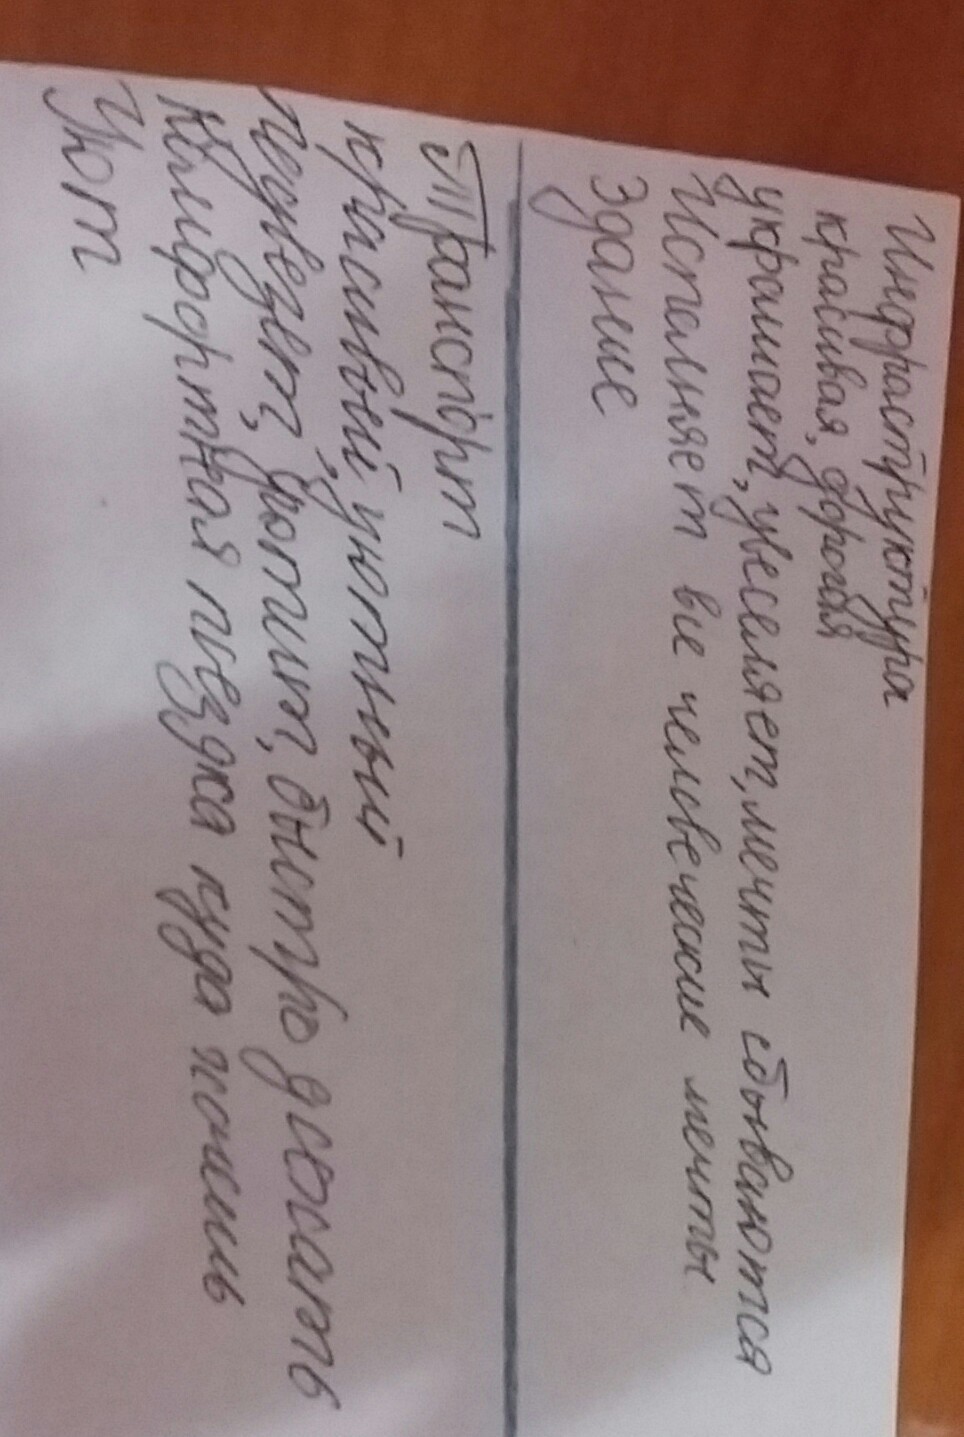 Инфраструктура
красивая, дорогая
украшает, увеселяет, мечты сбываются
Исполняет все человеческие мечты
Здание
Транспорт
красивый, уютный
подвезёт, доехать
Комфортная поездка куда хочешь
Уют